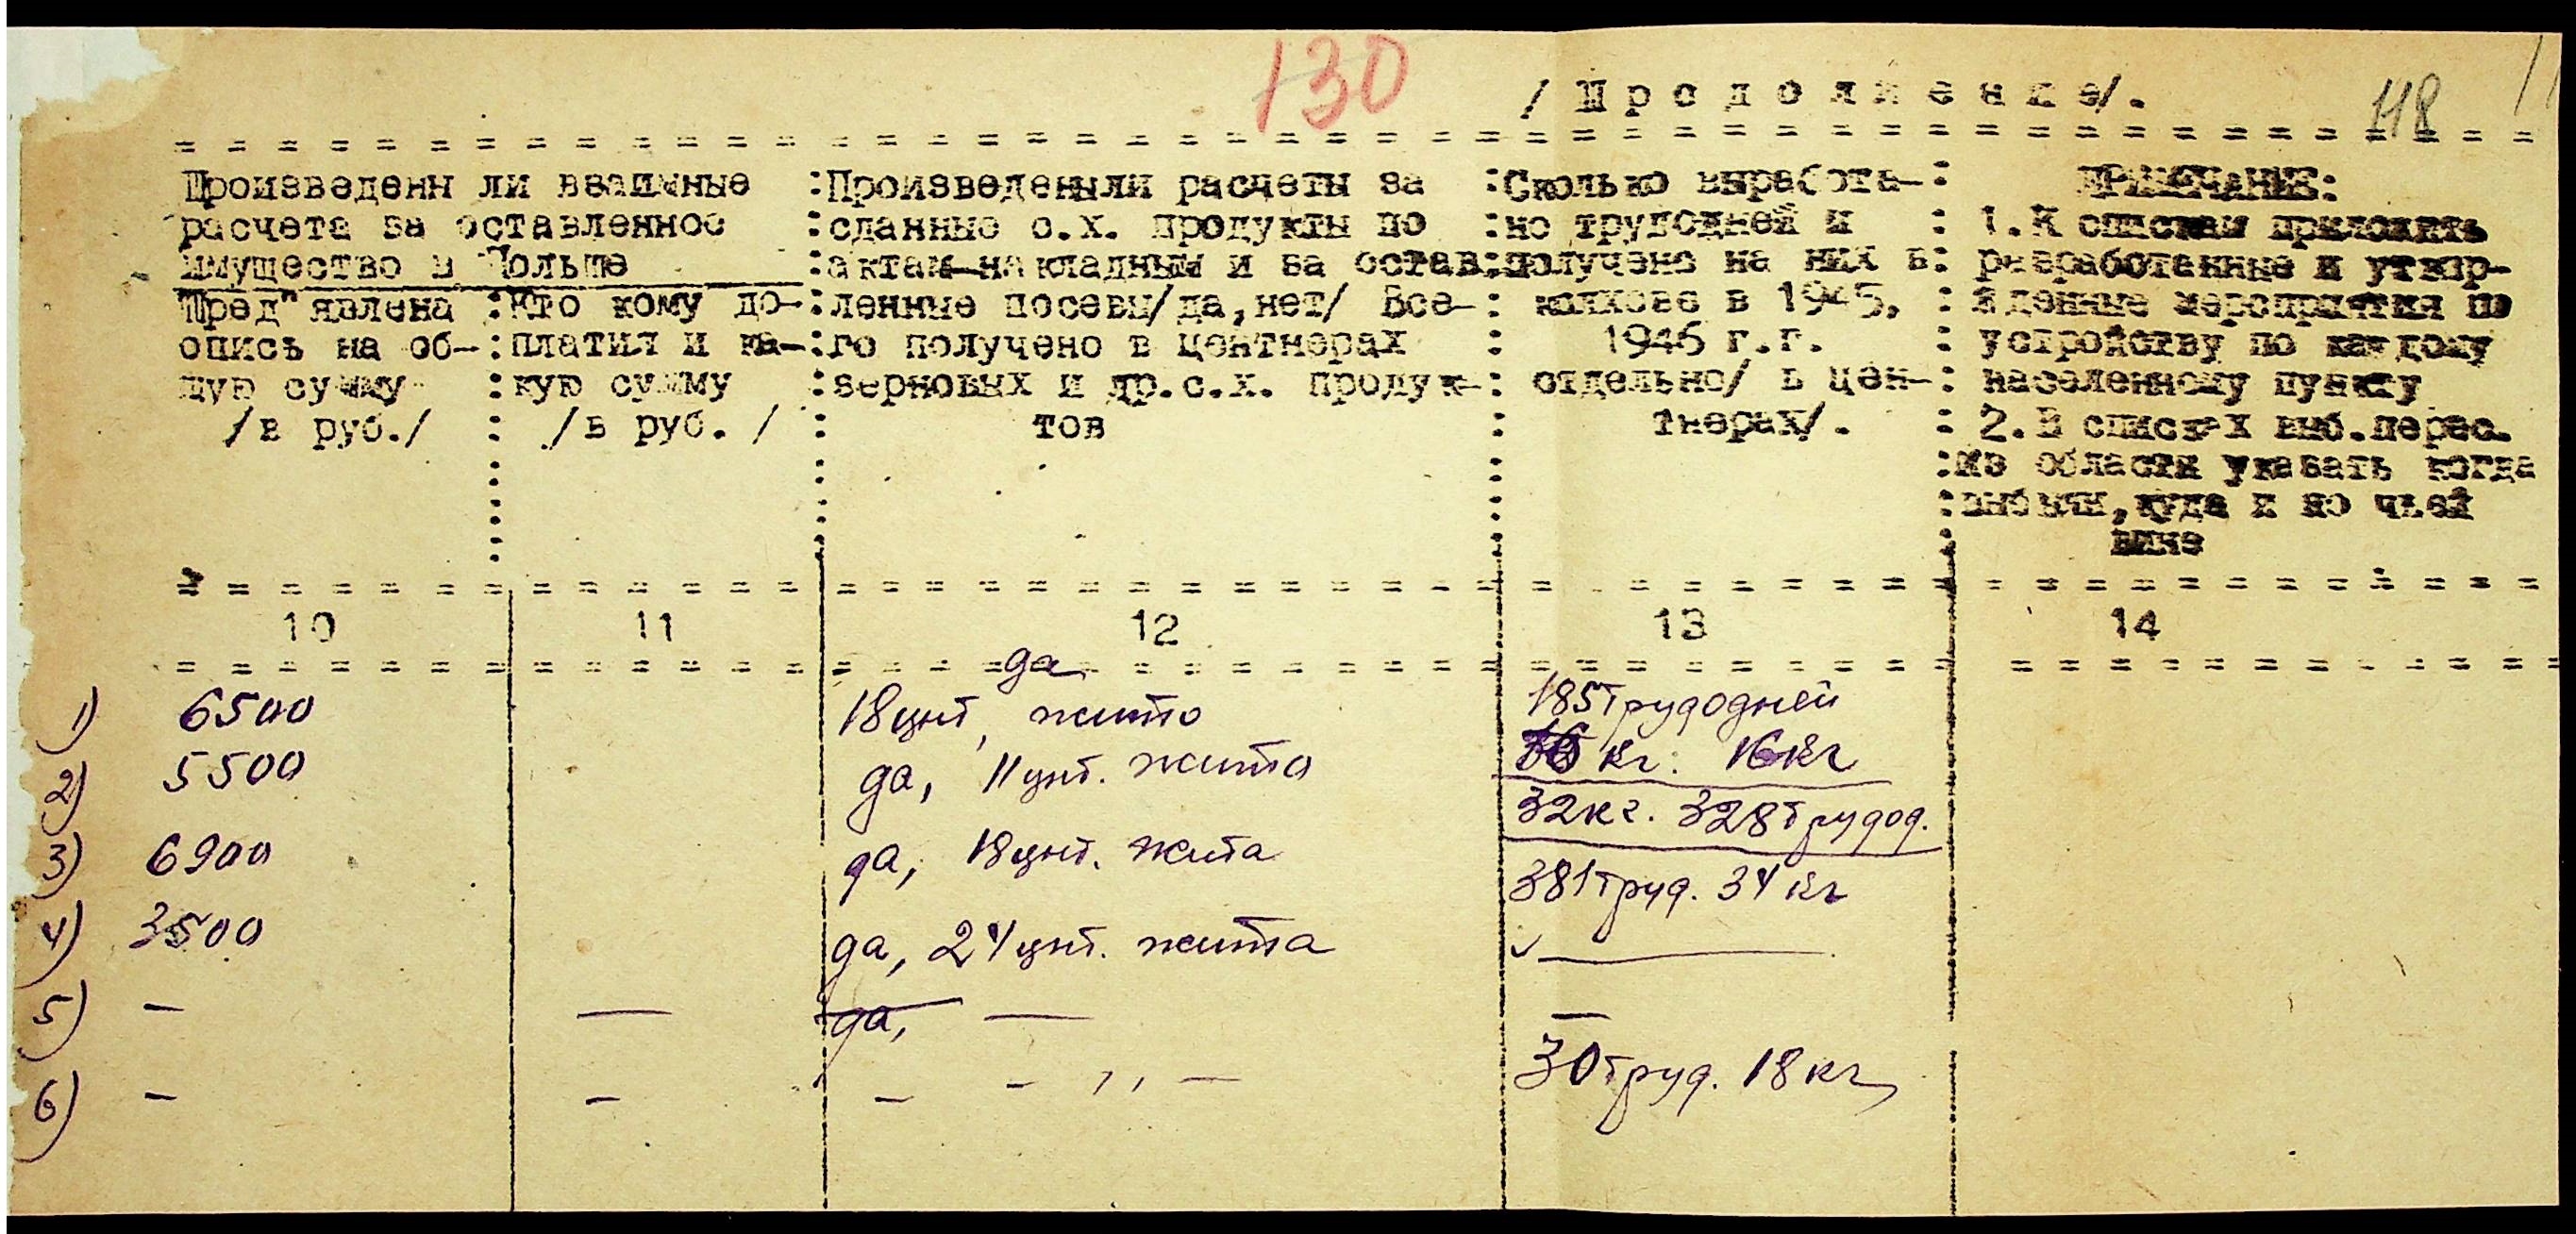 130
/ П р о д о л ж е н и е/.
118
Произведенн ли взаимные
расчета за оставленное
имущество в Польше
Пред"явлена :Кто кому до-
опись на об-:платил и ка-
щую сумму :кую сумму
/в руб./ : /в руб. /
:Произведеныли расчеты за
:сданные с.х. продукты по
:актам-накладным и за остав
:ленные посевы/да,нет/ Все-
:го получено в центнерах
:зерновых и др.с.х. продук-
тов
:Сколько выработа-
:но трудодней и
:получено на них в
: колхозе в 1945,
: 1946 г.г.
: отдельно/ в цен-
: тнерах/.
: ПРИМЕЧАНИЕ:
: 1.К спискам приложить
: разработанные и утвер-
: жденные мероприятия по
: устройству по каждому
: населенному пункту
: 2.В списках выб.перес.
:из области указать когда
:выбыли,куда и по чьей
вине
10 11 12 13 14
да
1) 6500 18 цнт, жито 185 трудодней
16 кг. 16 кг
2) 5500 да, 11 цнт. жита
32 кг. 328 трудод.
3) 6900 да, 18 цнт. жита
381 труд. 34 кг
4) 3500 да, 24 цнт. жита ✓ —
5) — — да, — —
6) — — — - ,, - 30 труд. 18 кг